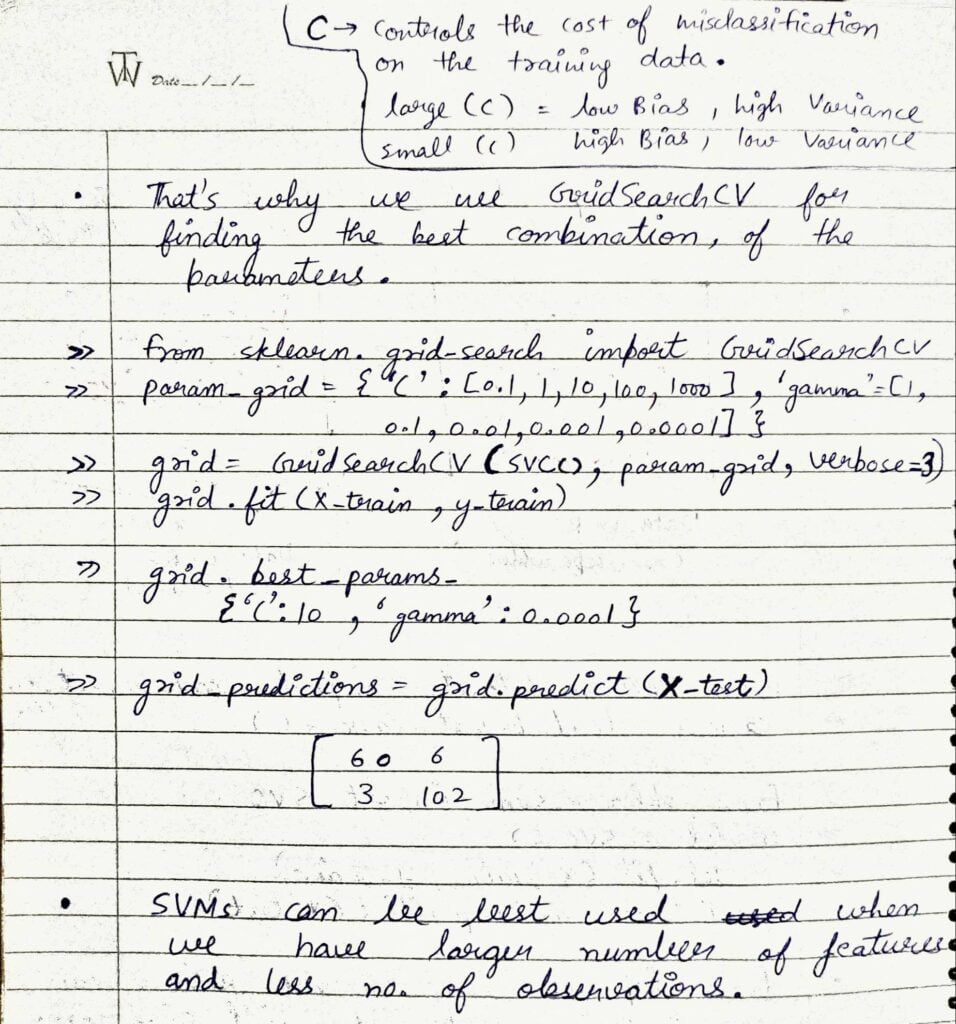 C → Controls the cost of misclassification
on the training data.
large (C) = low Bias, high Variance
small (C) high Bias, low Variance
TW Date_/_/_
• That's why we use GridSearchCV for
finding the best combination, of the
parameters.
>> from sklearn.grid-search import GridSearchCV
>> param_grid = {'C' : [0.1, 1, 10, 100, 1000], 'gamma' = [1,
0.1, 0.01, 0.001, 0.0001] }
>> grid = GridSearchCV (SVC(), param-grid, verbose=3)
>> grid.fit (X-train, y-train)
>> grid.best_params_
{'C': 10, 'gamma' : 0.0001}
>> grid_predictions = grid.predict (X-test)
[60 6
3 102]
• SVMs can be best used used when
we have larger number of features
and less no. of observations.